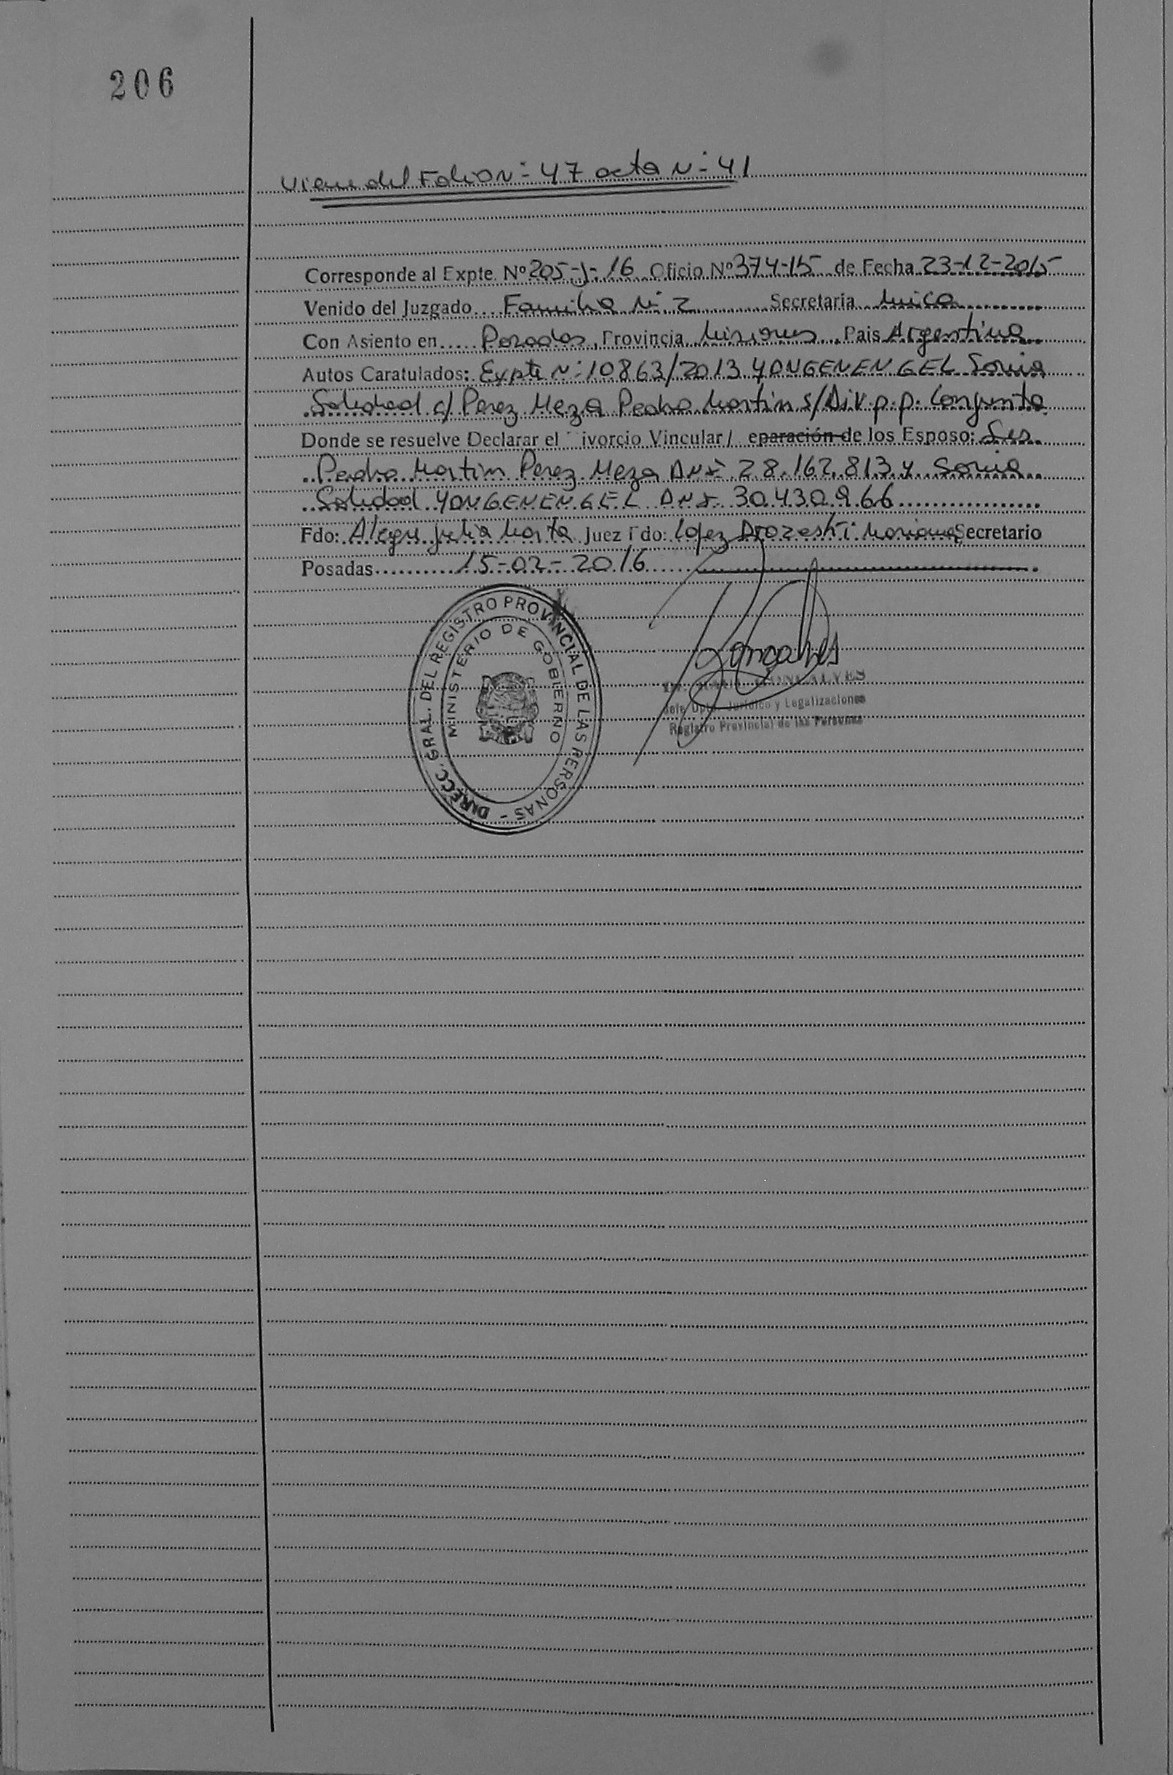 206
Viene del Folio N:- 47 acta N:- 41
Corresponde al Expte. Nº 205-J-16 Oficio Nº 374-15 de Fecha 23-12-2015
Venido del Juzgado... Familia N:- 2 ....... Secretaria unica
Con Asiento en..... Posadas. Provincia Misiones... Pais Argentina
Autos Caratulados: Expte N:- 10863/2013 YANGENENGEL Sonia
Soledad c/ Perez Meza Pedro Martin s/Div. p. p. Conjunta
Donde se resuelve Declarar el ivorcio Vincular/ eparación de los Esposo: Srs.
Pedro Martin Perez Meza DNI 28.162.813 y Sonia
Soledad YANGENENGEL DNI. 30.430.966
Fdo: Alegre Julia Marta Juez Fdo: Lopez Mariana Secretario
Posadas.......... 15-02-2016
DIRECC. GRAL. DEL REGISTRO PROVINCIAL DE LAS PERSONAS -
MINISTERIO DE GOBIERNO
Goncalves
GONCALVES
Jefe Dpto. Jurídico y Legalizaciones
Registro Provincial de las Personas